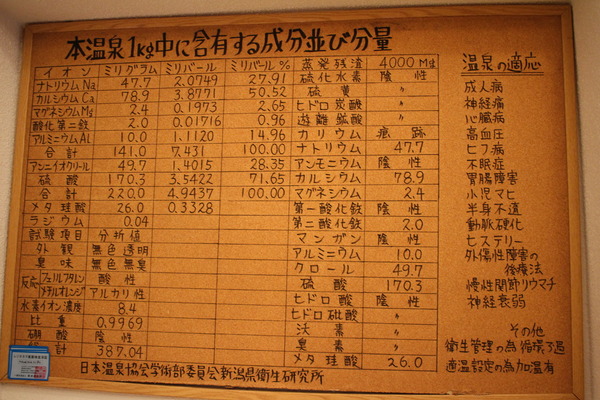 本温泉1kg中に含有する成分並び分量
イオン ミリグラム ミリバール ミリバール% 蒸発残渣 4000 M立
ナトリウム Na 47.7 2.0749 27.91 硫化水素 陰性
カルシウム Ca 78.9 3.8771 50.52 硫黄 〃
マグネシウム Mg 2.4 0.1973 2.65 ヒドロ炭酸 〃
酸化第二鉄 2.0 0.01716 0.96 遊離鉱酸 〃
アルミニウム AL 10.0 1.1120 14.96 カリウム 痕跡
合計 141.0 7.431 100.00 ナトリウム 47.7
アンニイオクリール 49.7 1.4015 28.35 アンモニウム 陰性
硫酸 170.3 3.5422 71.65 カルシウム 78.9
合計 220.0 4.9437 100.00 マグネシウム 2.4
メタ珪酸 26.0 0.3328 第一酸化鉄 陰性
ラジウム 0.04 第二酸化鉄 2.0
試験項目 分析値 マンガン 陰性
外観 無色透明 アルミニウム 10.0
臭味 無色無臭 クロール 49.7
反応 フェリルフタレン 酸性 硫酸 170.3
メチルオレンジ アルカリ性 ヒドロ酸 陰性
水素イオン濃度 8.4 ヒドロ砒酸 〃
比重 0.9969 沃素 〃
硼酸 陰性 臭素 〃
計 387.04 メタ珪酸 26.0
日本温泉協会学術部委員会新潟県衛生研究所
温泉の適応
成人病
神経痛
心臓病
高血圧
ヒフ病
不眠症
胃腸障害
小児マヒ
半身不遂
動脈硬化
ヒステリー
外傷性障害の
後療法
慢性関節リウマチ
神経衰弱
その他
衛生管理の為循環ろ過
適温設定の為加温有